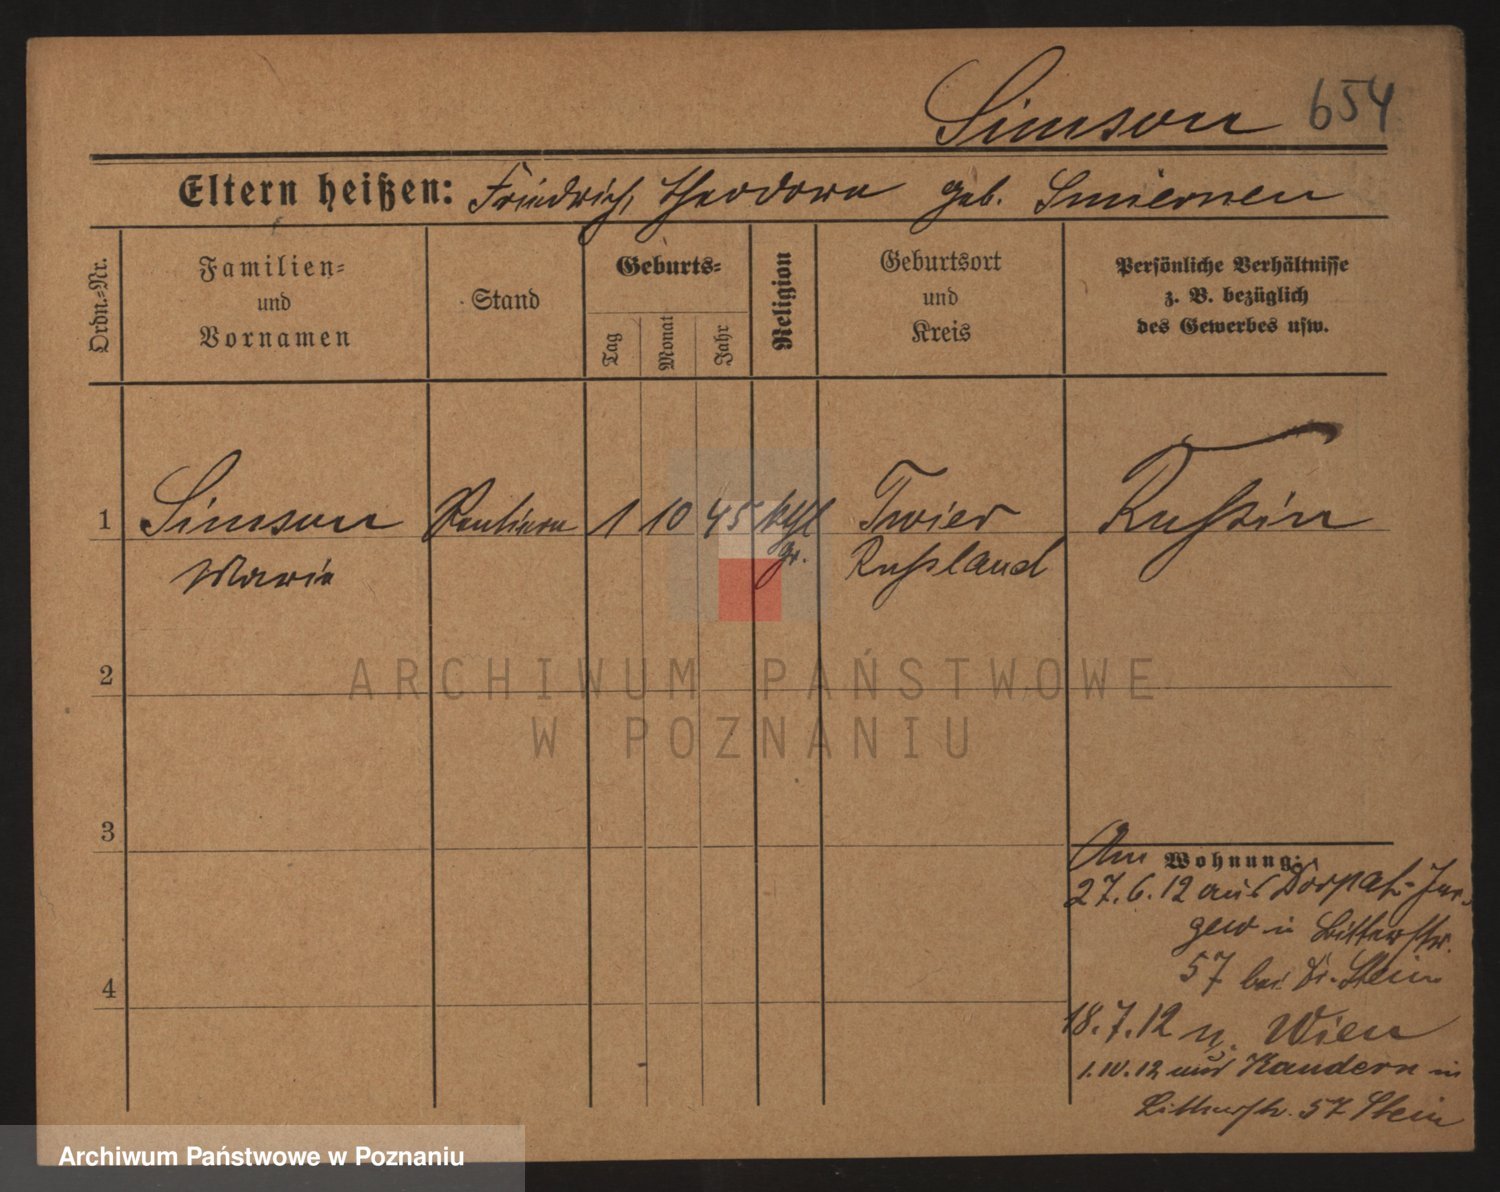 Simson 654
Eltern heißen: Friedrich, Theodora geb. Smiernen
Ordn.=Nr.
Familien=
und
Vornamen
Stand
Geburts=
Tag
Monat
Jahr
Religion
Geburtsort
und
Kreis
Persönliche Verhältnisse
z. B. bezüglich
des Gewerbes usw.
1 Simson Rentiere 1 10 45 kthl Twier Russin
Marie gr. Russland
2
ARCHIWUM PAŃSTWOWE
W POZNANIU
3
Am Wohnung:
27.6.12 aus Dorpat- Jur-
gew in Bitterstr.
57 bei Dr. Stein
4
18.7.12 n. Wien
1.10.12 aus Kandern in
Bitterstr. 57 Stein
Archiwum Państwowe w Poznaniu